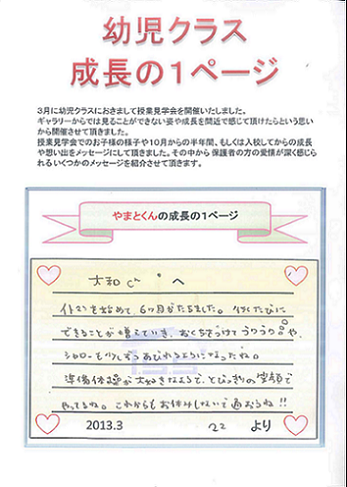 幼児クラス
成長の1ページ
3月に幼児クラスにおきまして授業見学会を開催いたしました。
ギャラリーからでは見ることができない姿や成長を間近で感じて頂けたらという思い
から開催させて頂きました。
授業見学会でのお子様の様子や10月からの半年間、もしくは入校してからの成長
や想い出をメッセージにして頂きました。その中から保護者の方の愛情が深く感じら
れるいくつかのメッセージを紹介させて頂きます。
やまとくんの成長の1ページ
大和 へ
を始めて、6ヶ月がたちました。行くたびに
できることが増えていき、おくちをつけてブクブクや、
シャワーも少しずつあびれるようになったね。
準備体操が大好きなようで、とびっきりの笑顔で
やってるね。これからもお休みしないで通おうね!!
2013.3 より